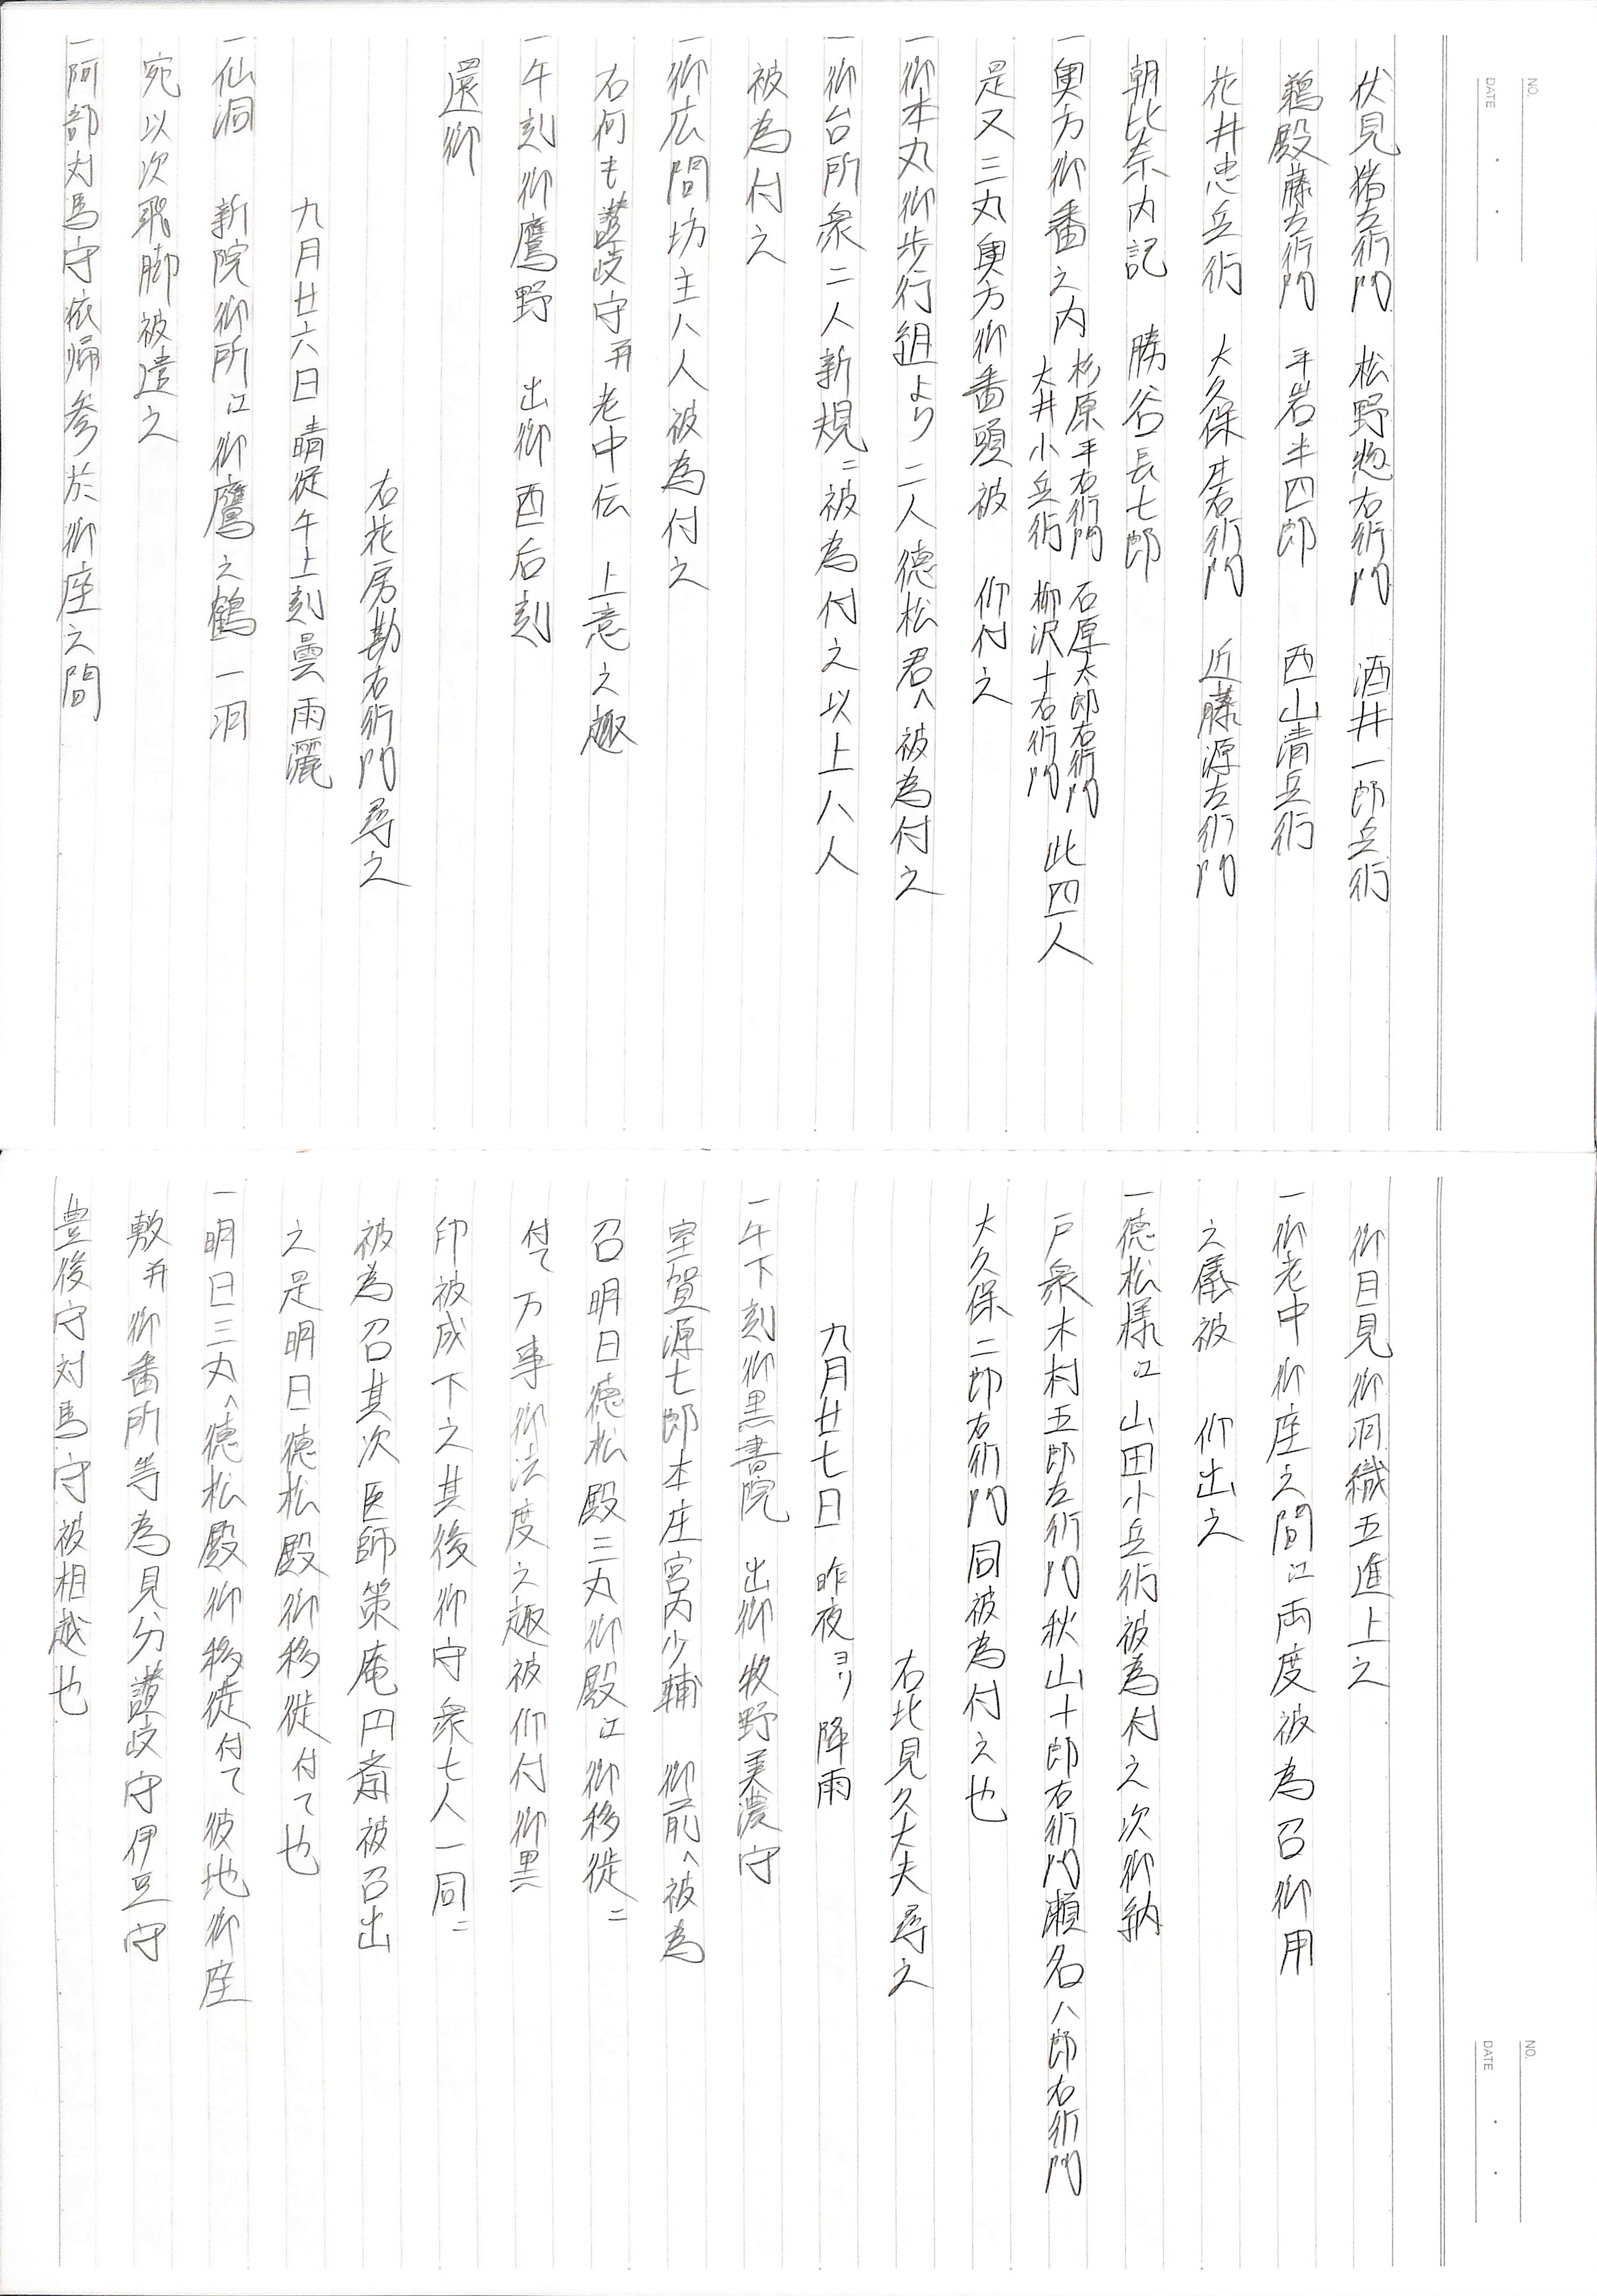 NO.
DATE
伏見猪左衛門　松野惣右衛門　酒井一郎兵衛
鵜殿藤左衛門　平岩半四郎　西山清兵衛
花井忠兵衛　大久保甚右衛門　近藤源左衛門
朝比奈内記　勝谷長七郎
一奥方御番之内　杉原平右衛門　石原太郎右衛門　大井小兵衛　柳沢十右衛門　此四人
是又三丸奥方御番頭被　仰付之
一御本丸御歩行組より二人徳松君へ被為付之
一御台所衆二人新規ニ被為付之以上八人
被為付之
一御広間坊主八人被為付之
右何も讃岐守并老中伝　上意之趣
一午刻御鷹野　出御酉后刻
還御
右花房勘右衛門尋之
九月廿六日晴従午上刻曇雨灑
一仙洞　新院御所江御鷹之鶴一羽
宛以次飛脚被遣之
一阿部対馬守依帰参於御座之間
御目見御羽織五進上之
一御老中御座之間江両度被為召御用
之儀被　仰出之
一徳松様江山田小兵衛被為付之次御納
戸衆木村五郎左衛門秋山十郎右衛門瀬名八郎右衛門
大久保二郎右衛門同被為付之也
右北見久大夫尋之
九月廿七日　昨夜ヨリ降雨
一午下刻御黒書院　出御牧野美濃守
室賀源七郎本庄宮内少輔　御前へ被為
召明日徳松殿三丸御殿江御移徙ニ
付て万事御法度之趣被仰付御黒
印被成下之其後御守衆七人一同ニ
被為召其次医師策庵円斎被召出
之是明日徳松殿御移徙付て也
一明日三丸へ徳松殿御移徙付て彼地御座
敷并御番所等為見分讃岐守伊豆守
豊後守対馬守被相越也
NO.
DATE